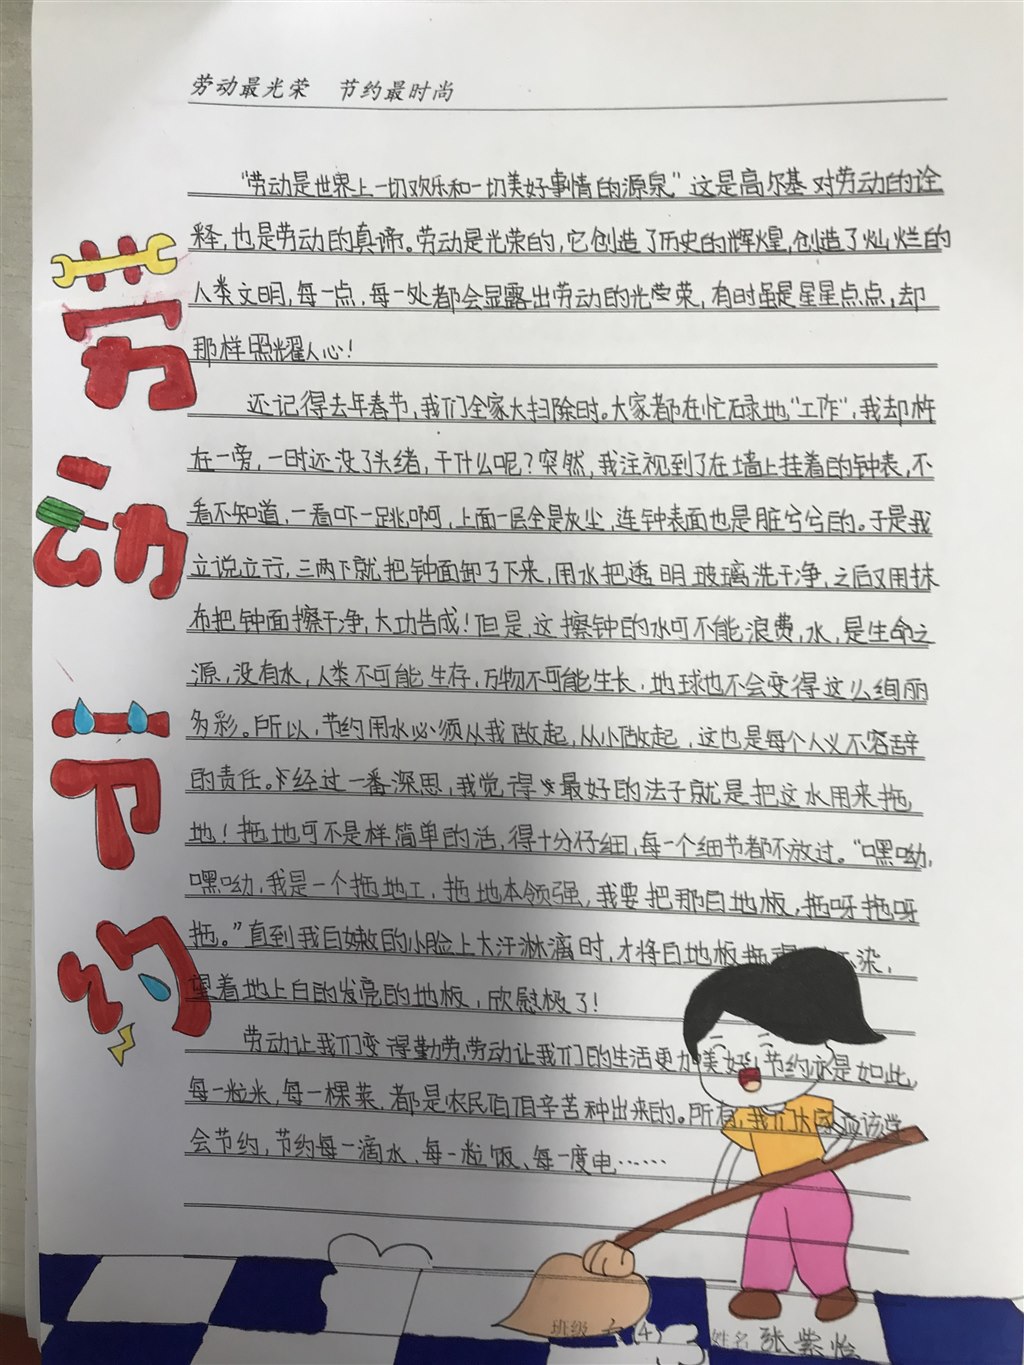 劳动最光荣 节约最时尚
劳动节约
"劳动是世界上一切欢乐和一切美好事情的源泉"这是高尔基对劳动的诠
释,也是劳动的真谛。劳动是光荣的,它创造了历史的辉煌,创造了灿烂的
人类文明,每一点,每一处都会显露出劳动的光荣,有时虽是星星点点,却
那样照耀人心!
还记得去年春节,我们全家大扫除时。大家都在忙碌地"工作",我却杵
在一旁,一时还没了头绪,干什么呢?突然,我注视到了在墙上挂着的钟表,不
看不知道,一看吓一跳啊,上面一层全是灰尘,连钟表面也是脏兮兮的。于是我
立说立行,三两下就把钟面卸了下来,用水把透明玻璃洗干净,之后又用抹
布把钟面擦干净,大功告成!但是,这擦钟的水可不能浪费,水,是生命之
源,没有水,人类不可能生存,万物不可能生长,地球也不会变得这么绚丽
多彩。所以,节约用水必须从我做起,从小做起,这也是每个人义不容辞
的责任。经过一番深思,我觉得最好的法子就是把这水用来拖
地!拖地可不是样简单的活,得十分仔细,每一个细节都不放过。"嘿呦,
嘿呦,我是一个拖地工,拖地本领强,我要把那白地板,拖呀拖呀
拖。"直到我白嫩的小脸上大汗淋漓时,才将白地板拖 染,
望着地上白的发亮的地板,欣慰极了!
劳动让我们变得勤劳,劳动让我们的生活更加美好!节约亦是如此,
每一粒米,每一棵菜,都是农民伯伯辛苦种出来的。所有,我们 应该学
会节约,节约每一滴水、每一粒饭、每一度电……
班级 六(4) 姓名 张紫怡